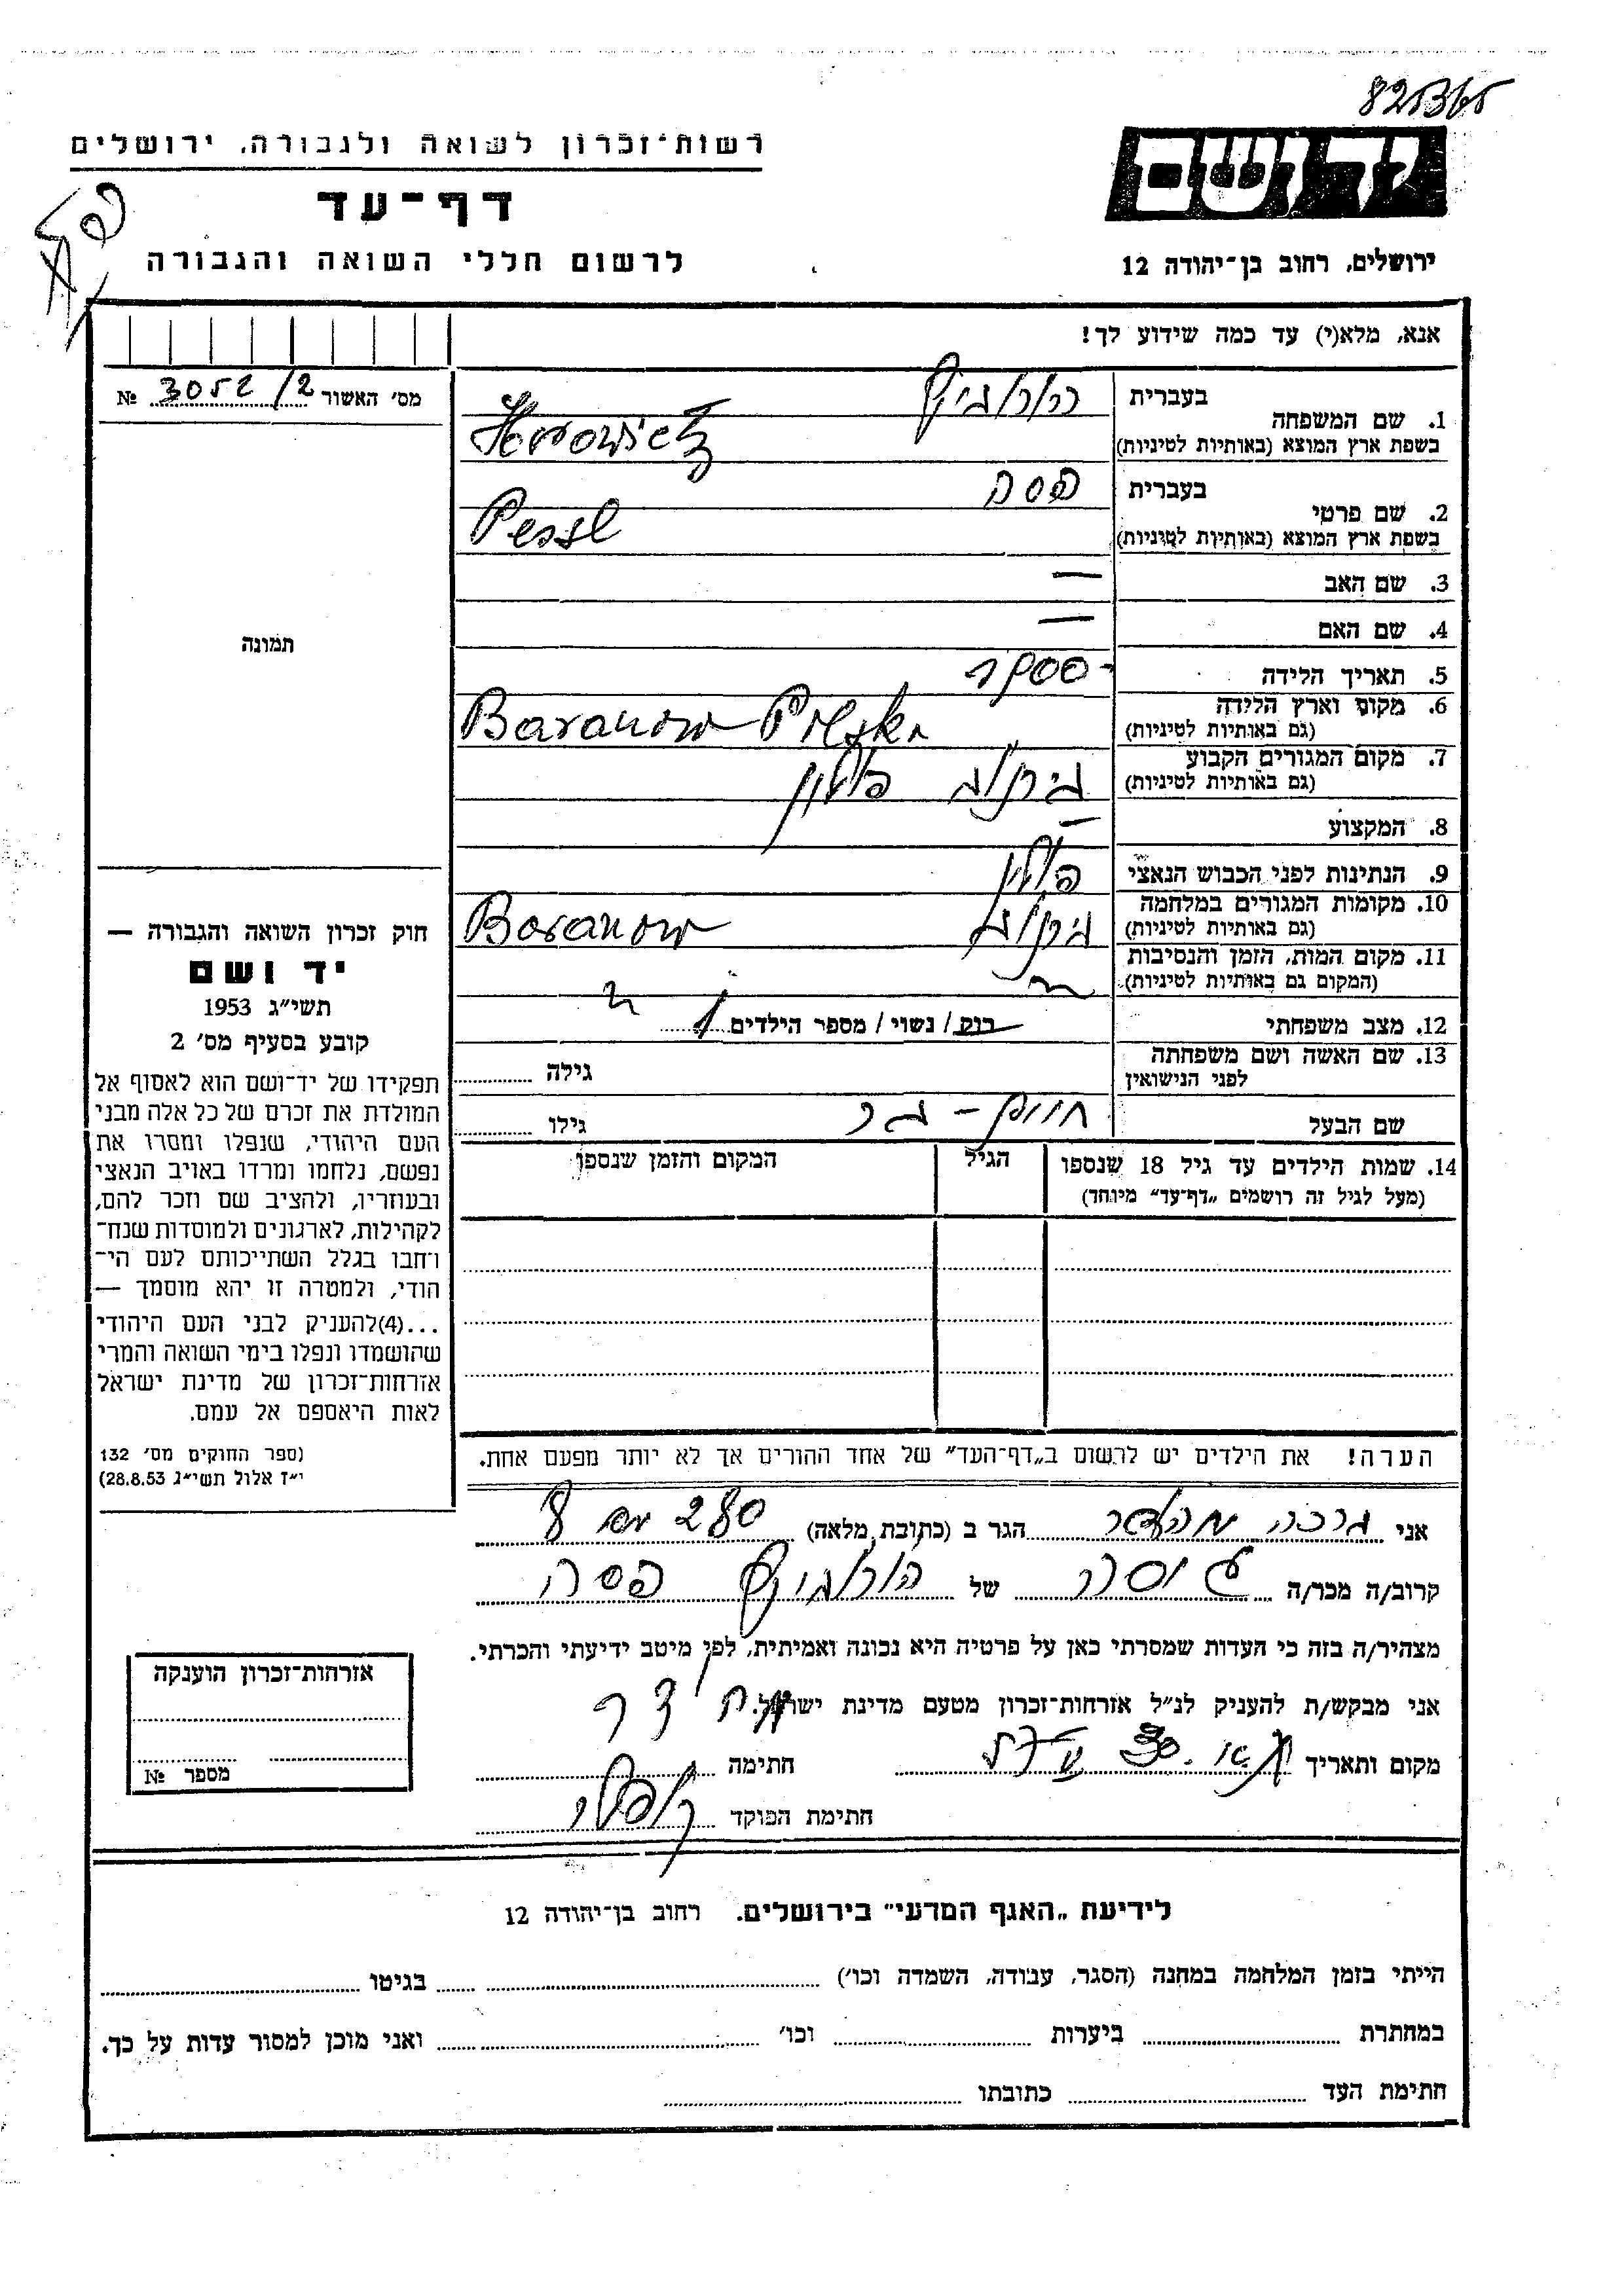 יד ושם
ירושלים, רחוב בן־יהודה 12
רשות־זכרון לשואה ולגבורה, ירושלים
דף־עד
לרשום חללי השואה והגבורה
אנא, מלא(י) עד כמה שידוע לך!
מס׳ האשור 3052/2 №
תמונה
1. שם המשפחה
בעברית
בשפת ארץ המוצא (באותיות לטיניות) Horowietz
2. שם פרטי
בעברית פסה
בשפת ארץ המוצא (באותיות לטיניות)
3. שם האב —
4. שם האם —
5. תאריך הלידה 1900
6. מקום וארץ הלידה
(גם באותיות לטיניות) Baranow Polska
7. מקום המגורים הקבוע
(גם באותיות לטיניות) פולין
8. המקצוע —
9. הנתינות לפני הכבוש הנאצי פולין
10. מקומות המגורים במלחמה
(גם באותיות לטיניות) Baranow
11. מקום המות, הזמן והנסיבות
(המקום גם באותיות לטיניות)
12. מצב משפחתי רוק / נשוי / מספר הילדים
13. שם האשה ושם משפחתה
לפני הנישואין
גילה
שם הבעל
גילו
14. שמות הילדים עד גיל 18 שנספו
(מעל לגיל זה רושמים „דף־עד״ מיוחד)
הגיל
המקום והזמן שנספו
הערה! את הילדים יש לרשום ב„דף־העד״ של אחד ההורים אך לא יותר מפעם אחת.
חוק זכרון השואה והגבורה —
יד ושם
תשי״ג 1953
קובע בסעיף מס׳ 2
תפקידו של יד־ושם הוא לאסוף אל
המולדת את זכרם של כל אלה מבני
העם היהודי, שנפלו ומסרו את
נפשם, נלחמו ומרדו באויב הנאצי
ובעוזריו, ולהציב שם וזכר להם,
לקהילות, לארגונים ולמוסדות שנח־
רחבו בגלל השתייכותם לעם הי־
הודי, ולמטרה זו יהא מוסמך —
...(4)להעניק לבני העם היהודי
שהושמדו ונפלו בימי השואה והמרי
אזרחות־זכרון של מדינת ישראל
לאות היאספם אל עמם.
(ספר החוקים מס׳ 132
י״ז אלול תשי״ג 28.8.53)
אני הגר ב (כתובת מלאה)
קרוב/ה מכר/ה של פסה
מצהיר/ה בזה כי העדות שמסרתי כאן על פרטיה היא נכונה ואמיתית, לפי מיטב ידיעתי והכרתי.
אני מבקש/ת להעניק לנ״ל אזרחות־זכרון מטעם מדינת ישראל.
מקום ותאריך חתימה
חתימת הפוקד
אזרחות־זכרון הוענקה
מספר №
לידיעת „האגף המדעי״ בירושלים. רחוב בן־יהודה 12
הייתי בזמן המלחמה במחנה (הסגר, עבודה, השמדה וכו׳) בגיטו
במחתרת ביערות וכו׳ ואני מוכן למסור עדות על כך.
חתימת העד כתובתו